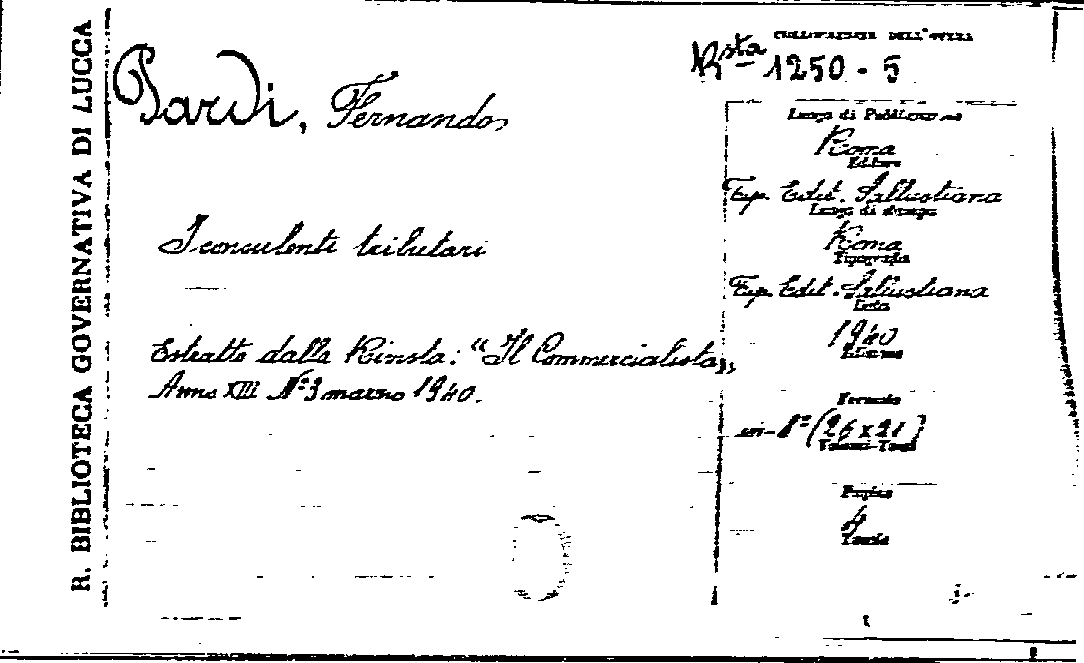 R. BIBLIOTECA GOVERNATIVA DI LUCCA
COLLOCAZIONE DELL'OPERA
Rsta 1250 - 5
Pardi, Fernando
Luogo di Pubblicazione
Roma
Editore
Tip. Edit. Sallustiana
Luogo di stampa
Roma
Tipografia
Tip. Edit. Sallustiana
Data
1940
Edizione
I consulenti tributari
Estratto dalla Rivista: "Il Commercialista„
Anno XIII N° 3 marzo 1940.
Formato
in-8° (26 x 21)
Volumi-Tomi
Pagine
4
Tavole